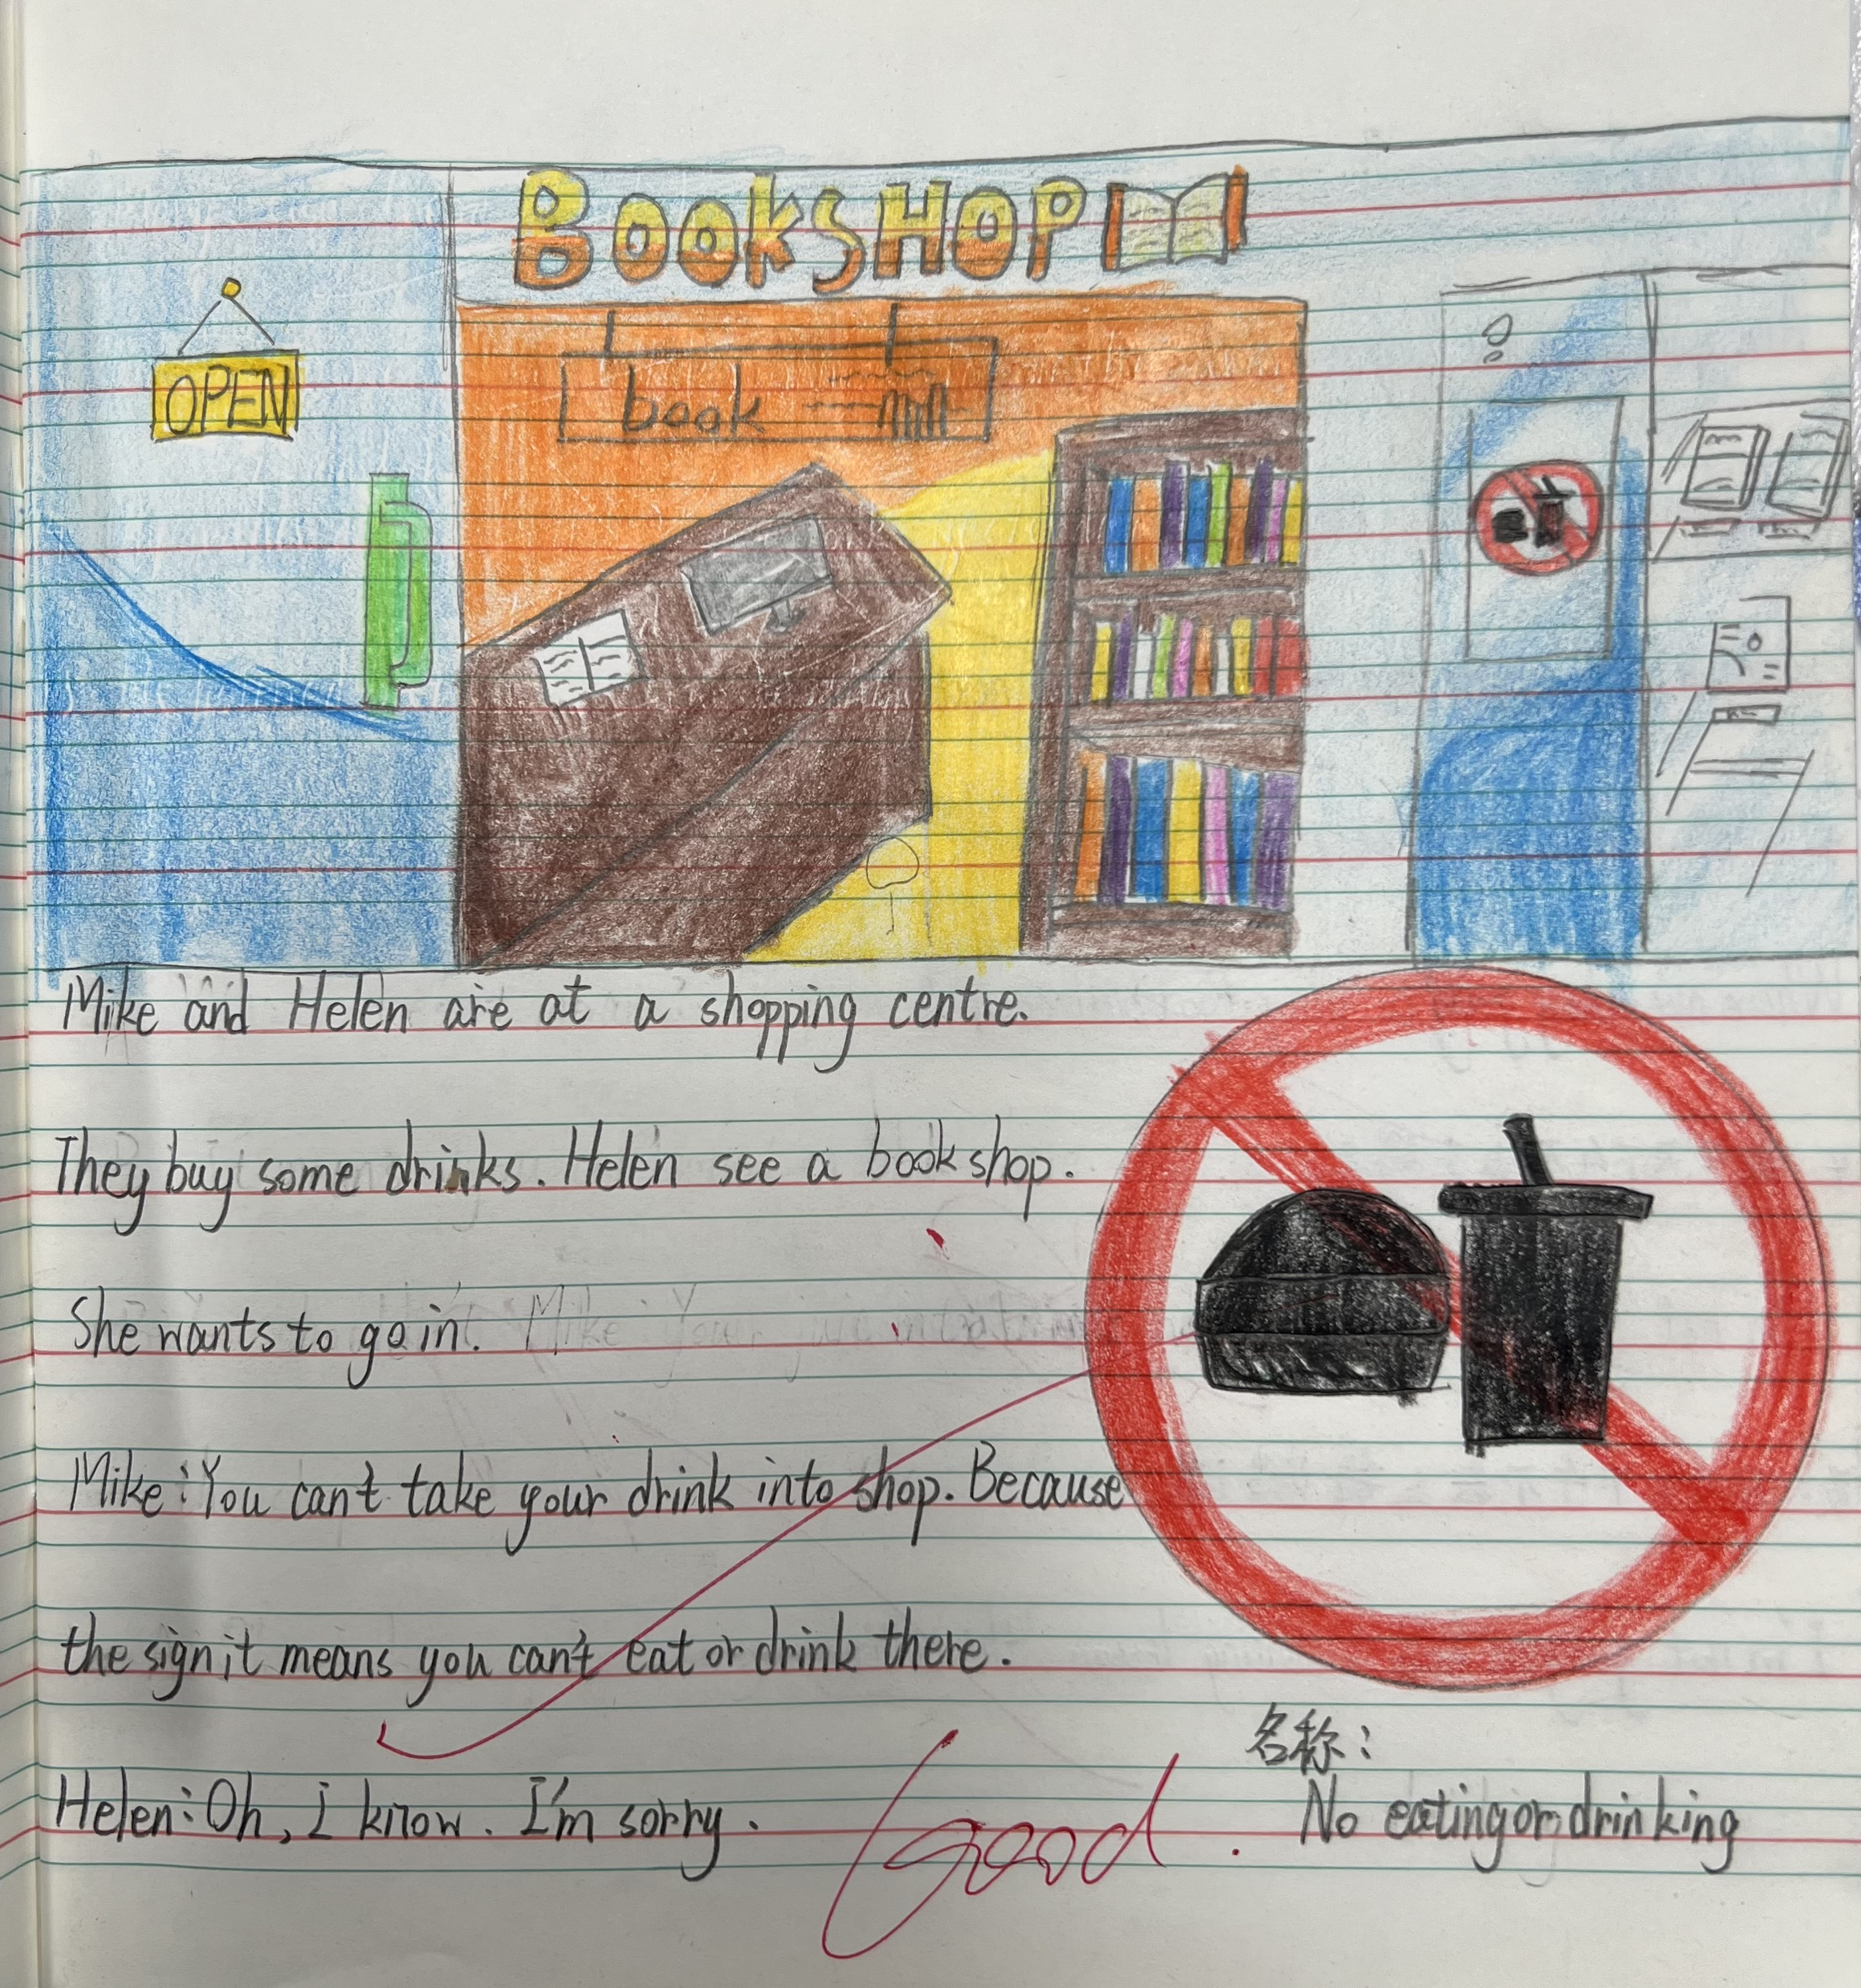 BookSHOP
OPEN
book
Mike and Helen are at a shopping centre.
They buy some drinks. Helen see a bookshop.
She wants to go in.
Mike: You can't take your drink into shop. Because
the sign it means you can't eat or drink there.
Helen: Oh, I know. I'm sorry.
Good
名称:
No eating or drinking